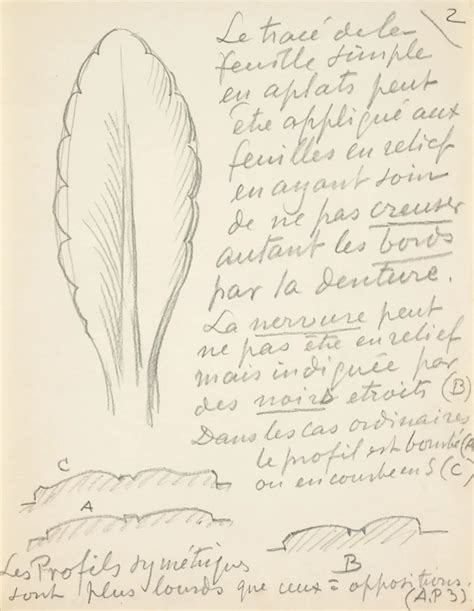 2
Le tracé de la
feuille simple
en aplats peut
être appliqué aux
feuilles en relief
en ayant soin
de ne pas creuser
autant les bords
par la denture.
La nervure peut
ne pas être en relief
mais indiquée par
des noirs etroits (B)
Dans les cas ordinaires
le profil est bombé (A
ou en courbe en S (C)
C
A
B
Les Profils symétriques
sont plus lourds que ceux = oppositions.
(A.P3)